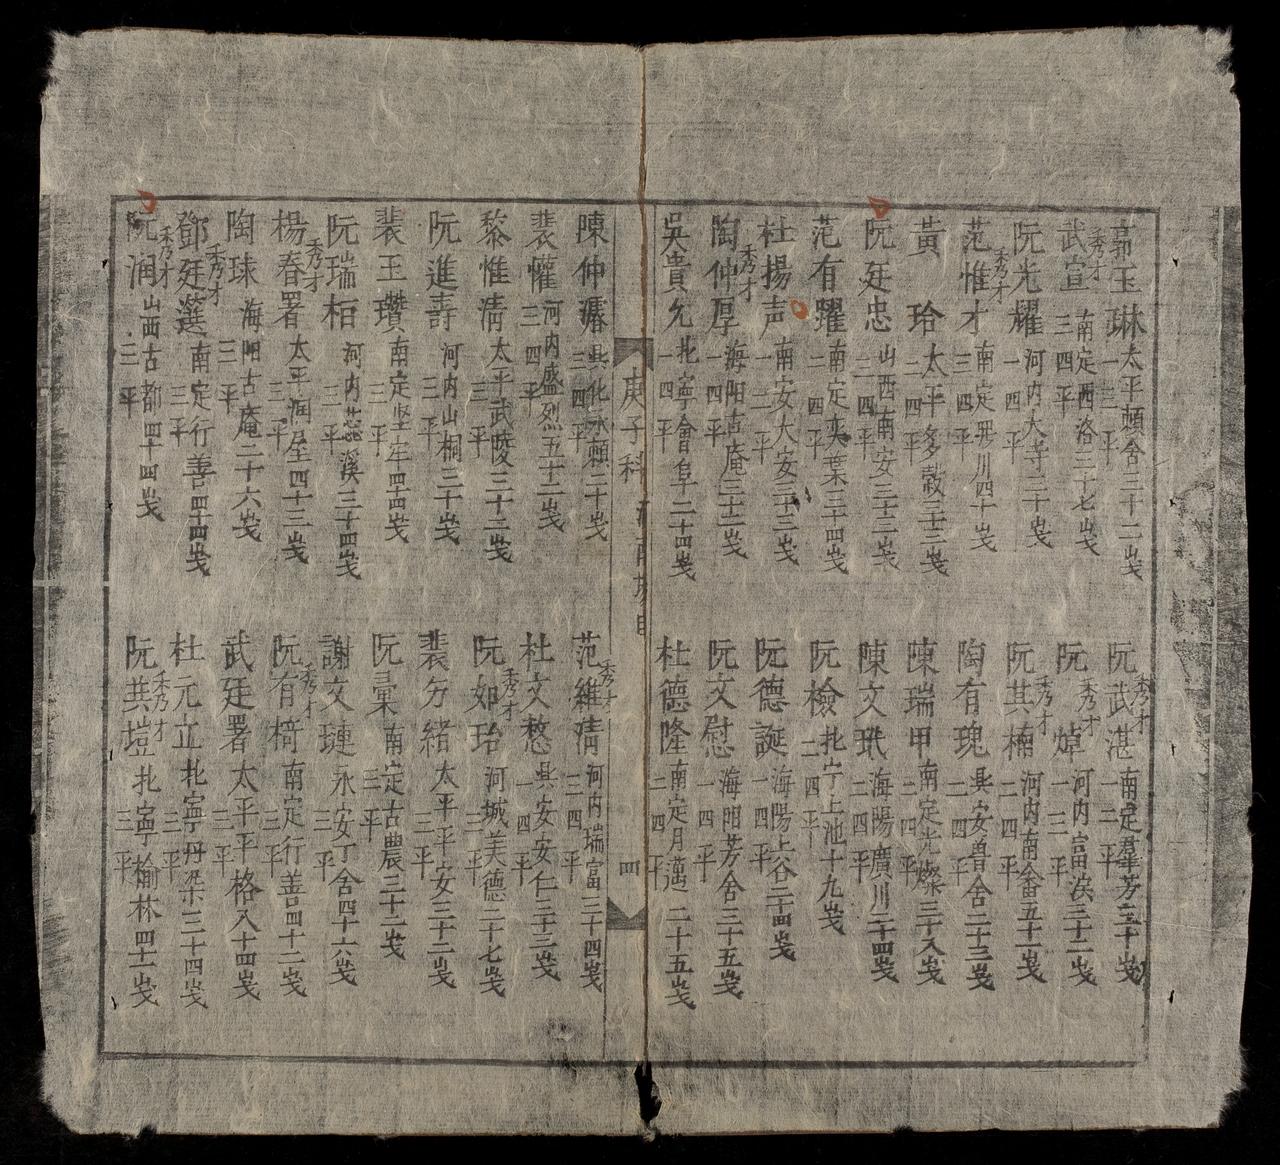 郭玉琳 太平頼舍三十二歲 一三平
秀才 武宣 南定西洛三十七歲 三四平
阮光耀 河内大寺三十歲 一四平
秀才 范惟才 南定 川四十歲 三四平
黃玲 太平多穀三十三歲 二四平
阮廷忠 山西南安三十三歲 二四平
范有躍 南定夾葉三十四歲 二四平
杜揚声 南安大安三十三歲 一二平
秀才 陶仲厚 海阳古庵三十二歲 一四平
吳貴允 北寧會阜二十四歲 一四平
秀才 阮武湛 南定羣芳三十歲 一二平
秀才 阮焯 河内富涣三十二歲 一三平
秀才 阮其楠 河内南畲五十一歲 二四平
陶有瑰 具安曽舍二十三歲 二四平
陳瑞甲 南定光燦三十八歲 二四平
陳文玳 海陽廣川二十四歲 二四平
阮檢 北宁上池十九歲 二四平
阮德誕 海陽上谷二十四歲 一四平
阮文慰 海阳芳舍三十五歲 一四平
杜德隆 南定月邁二十五歲 二四平
庚子科 河南 四
陳仲 具化永賴二十歲 三四平
裴懽 河内盛烈五十二歲 三四平
黎惟清 太平武陵三十二歲 三平
阮進壽 河内山桐三十歲 三平
裴玉瓚 南定坚牢四十四歲 三平
阮瑞栢 河内蕊溪三十四歲 三平
秀才 楊春署 太平润屋四十三歲 三平
陶球 海阳古庵二十六歲 三平
秀才 鄧廷選 南定行善四十四歲 三平
秀才 阮润 山西古都四十四歲 三平
秀才 范維清 河内瑞富三十四歲 三四平
杜文愗 具安安仁三十三歲 一四平
秀才 阮如珆 河城美德二十七歲 三平
裴分緒 太平平安三十二歲 三平
阮彙 南定古農三十二歲 三平
謝文璉 永安丁舍四十六歲 三平
秀才 阮有椅 南定行善四十二歲 三平
武廷署 太平平格八十四歲 三平
杜元立 北寧丹染三十四歲 三平
秀才 阮共塏 北寧榆林四十一歲 三平